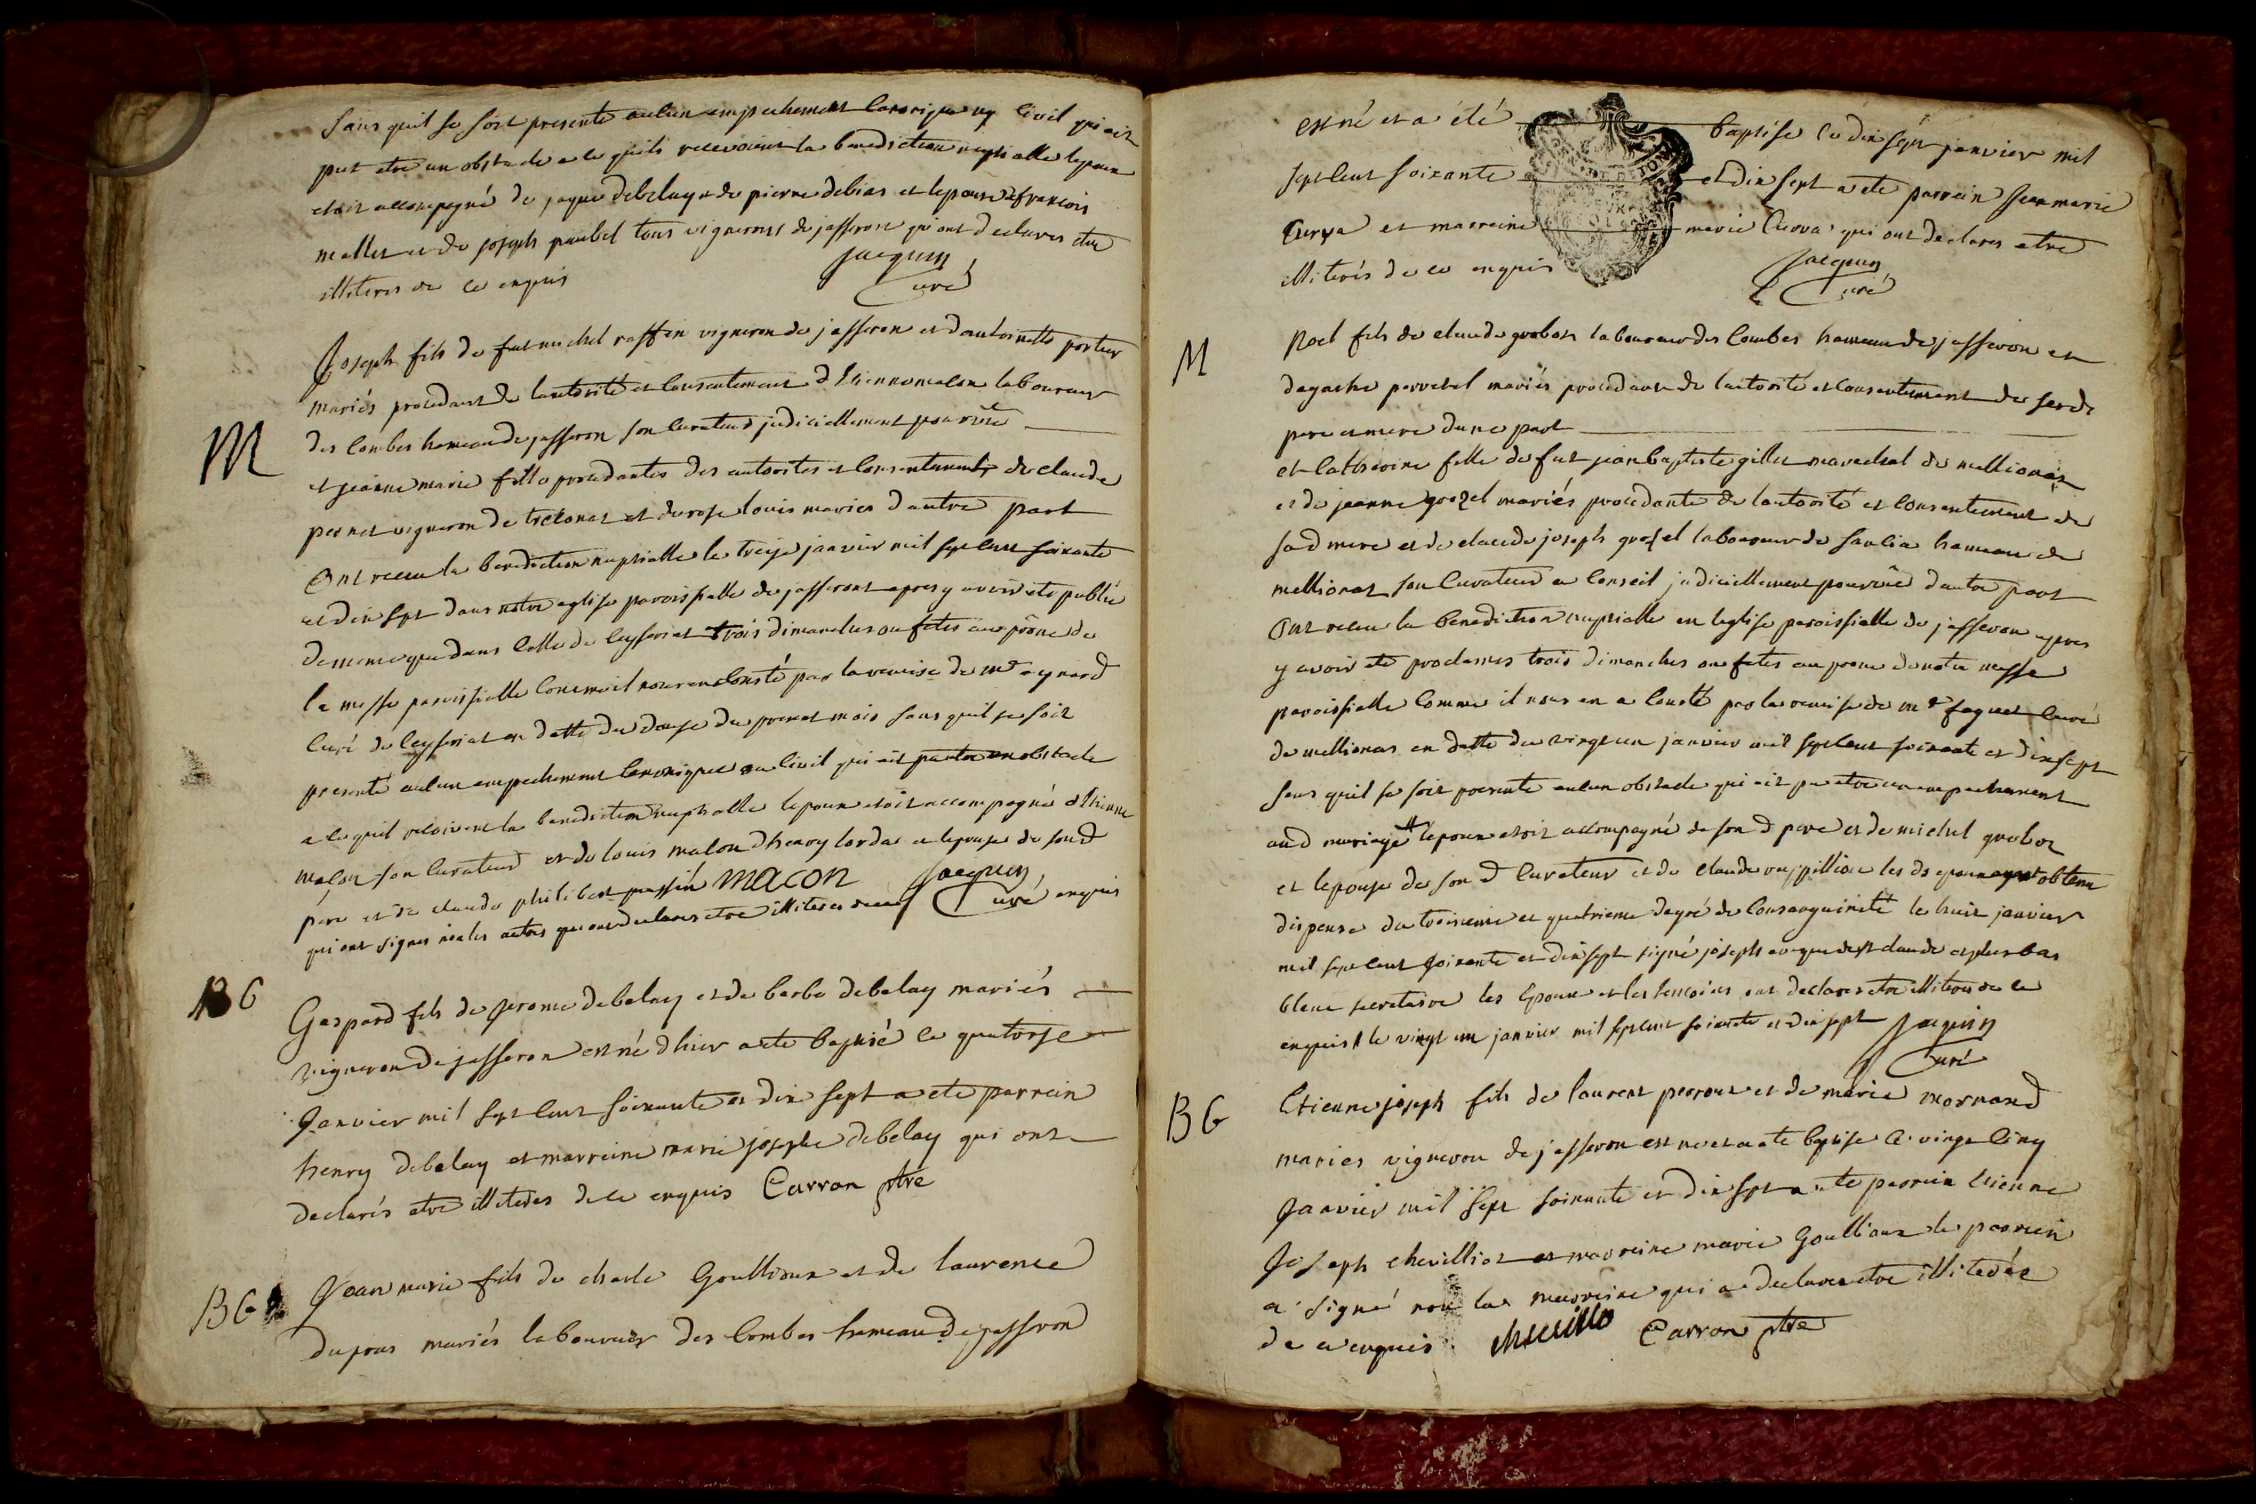 sans quil se soit presente aucun empechement canonique ny civil qui ait
put etre un obstacle a ce quils recevoient la benediction nuptialle lepoux
etoit accompagné de jaque debelay et de pierre debias et lepouse de francois
mallet et de joseph paubel tous vignerons de jasseron qui ont declarés etre
illiteres de ce enquis jacquin curé
M
Joseph fils de fut michel raffin vigneron de jasseron et dantoinette portier
mariés procedant de lautorité et consentement d'Etienne macon laboureur
des combes hameau de jasseron son curateur judiciellement pourvûe
et jeanne marie fille procedantes des autorités et consentements de claude
pernet vigneron de treconas et de rose louis mariés d'autre part
Ont receu la benediction nuptialle le treize janvier mil sept cent soixante
et dix sept dans notre eglise paroissialle de jasseront apres y avoir été publié
de meme que dans celle de ceyseriat trois dimanches ou fetes au prône de
la messe paroissialle comme il nous en a consté par la remise de mr aynard
curé de ceyseriat en datte du douze du present mois sans quil se soit
presenté aucun empechement canonique ou civil qui ait pu etre un obstacle
a ce quil recoivent la benediction nuptialle lepoux etoit accompagné d'Etienne
macon son curateur et de louis macon d'henry cordas et lepouse de sond
pere et de claude philibert massin macon jacquin curé
qui ont signes non les autres qui ont declares etre illiteres de ce enquis
BG
Gaspard fils de Jerome debelay et de barbe debelay mariés
vigneron de jasseron est né d'hier a ete baptisé ce quatorze
Janvier mil sept cent soixante et dix sept a ete parrein
henry debelay et marreine marie josephe debelay qui ont
declarés etre illiteres de ce enquis Carron ptre
BG
Jean marie fils de charle Goullioux et de laurence
dupras mariés laboureur des Combes hameau de jasseron
est né et a été baptise ce dix sept janvier mil
sept cent soixante et dix sept a ete parrein Jean marie
Curva et marreine marie Curva qui ont declares etre
illiterés de ce enquis jacquin curé
M
Noel fils de claude grobon laboureur des Combes hameau de jasseron et
dagathe perretel mariés procedant de lautorité et consentement de sesds
pere et mere dune part
et Catherine fille de fut jean baptiste gillet marechal de mellionas
et de jeanne grozel mariés procedante de lautorité et consentement de
sad mere et de claude joseph grozel laboureur de Saulia hameau de
mellionas son curateur et conseil judiciellement pourvûe d'autre part
Ont receu la benediction nuptialle en leglise paroissialle de jasseron apres
y avoir eté proclamés trois dimanches ou fetes au prone de notre messe
paroissialle comme il nous en a consté par la remise de mr faguet curé
de mellionas en datte du vingt un janvier mil sept cent soixante et dix sept
sans quil se soit presenté aucun obstacle qui ait pu etre un empechement
aud mariage lepoux etoit accompagné de son d pere et de michel grobon
et lepouse de son d curateur et de claude les ds epoux ayant obtenu
dispense du troisieme et quatrieme degré de Consanguinité le huit janvier
mil sept cent soixante et dix sept signé joseph eveque de st claude et plus bas
blanc secretaire les epoux et les temoins ont declarés etre illiteres de ce
enquis le vingt un janvier mil sept cent soixante et dix sept Jacquin
Curé
BG
Etienne joseph fils de laurent perrout et de marie mornand
mariés vigneron de jasseron est né et a ete baptise ce vingt cinq
Janvier mil sept soixante et dix sept a ete parrein Etienne
Joseph chevilliot et marreine marie Goullioux le parrein
a signé non la marreine qui a declaré etre illiterée
de ce enquis Carron ptre